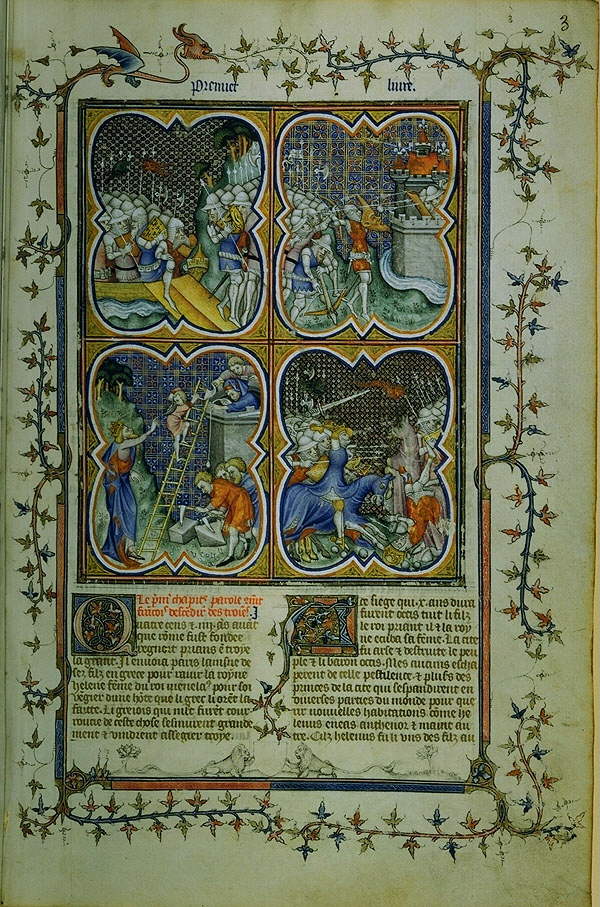 3
Premier livre.
Le p̃mi᷑ chapit᷑. parole cõm̃t
francois descẽdir᷑ des troiẽs.
Quatre cens & iiij. ãs auãt
que rõme fust fondee
regnoit prians ẽ troye
la grant. Il envoia paris lainsne de
sez filz en grece pour rauir la royne
helene feme du roi menela⁹ pour soi
vegier dune hõte que li grec li orẽt ia
faitte. Li grejois qui mlt᷑ furẽt cour
roucie de ceste chose sesmurent grande
ment & vindrẽt asseger troye.
A ce siege qui .x. ans dura
furent occis tuit li filz
le roy priant il & la roy
ne ecuba sa feme. La cite
fu arse & destruite le peu
ple & li baron occis. Mes aucuns escha
perent de celle pestilence & plus᷑s des
princes de la cite qui sespandirent en
diuerses parties du monde pour que
rir nouvelles habitations cõme he
lenus eneas anthenor & maint au
tre. Cilz helenus fu li uns des filz au